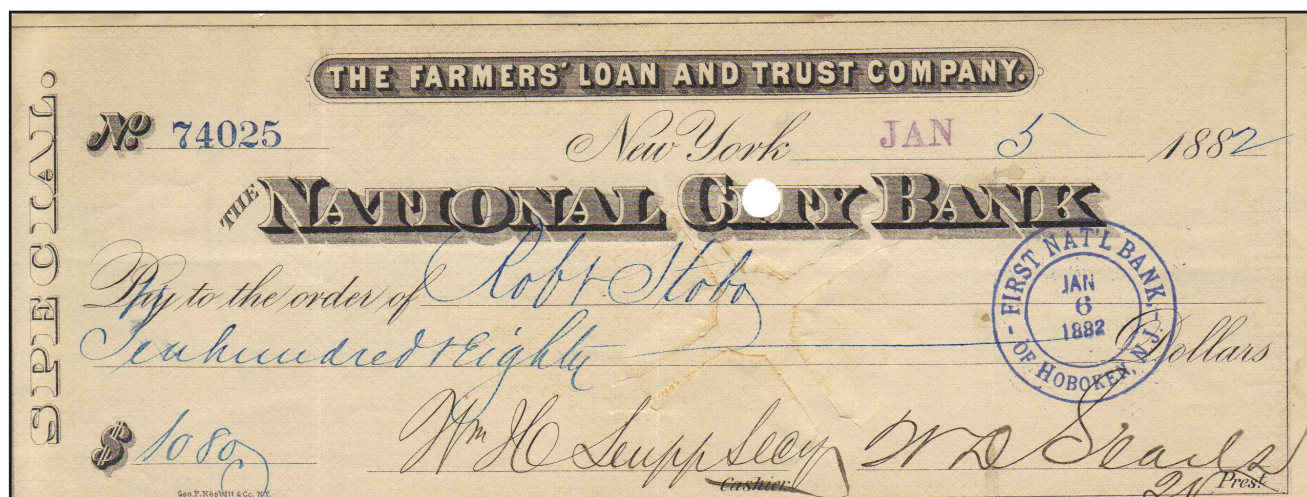 THE FARMERS' LOAN AND TRUST COMPANY.
SPECIAL.
No. 74025 New York JAN 5 1882
THE NATIONAL CITY BANK
Pay to the order of Robt Stobo
Ten hundred & Eighty Dollars
FIRST NAT'L BANK, OF HOBOKEN, N.J.
JAN
6
1882
$ 1080
Wm H Leupp Secy W D Searls
Cashier Prest
Geo. F. Nesbitt & Co. N.Y.